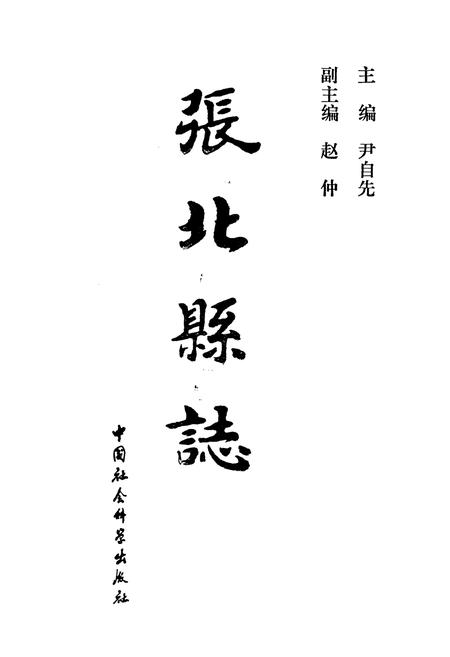 主编 尹自先
副主编 赵仲
張北縣誌
中国社会科学出版社